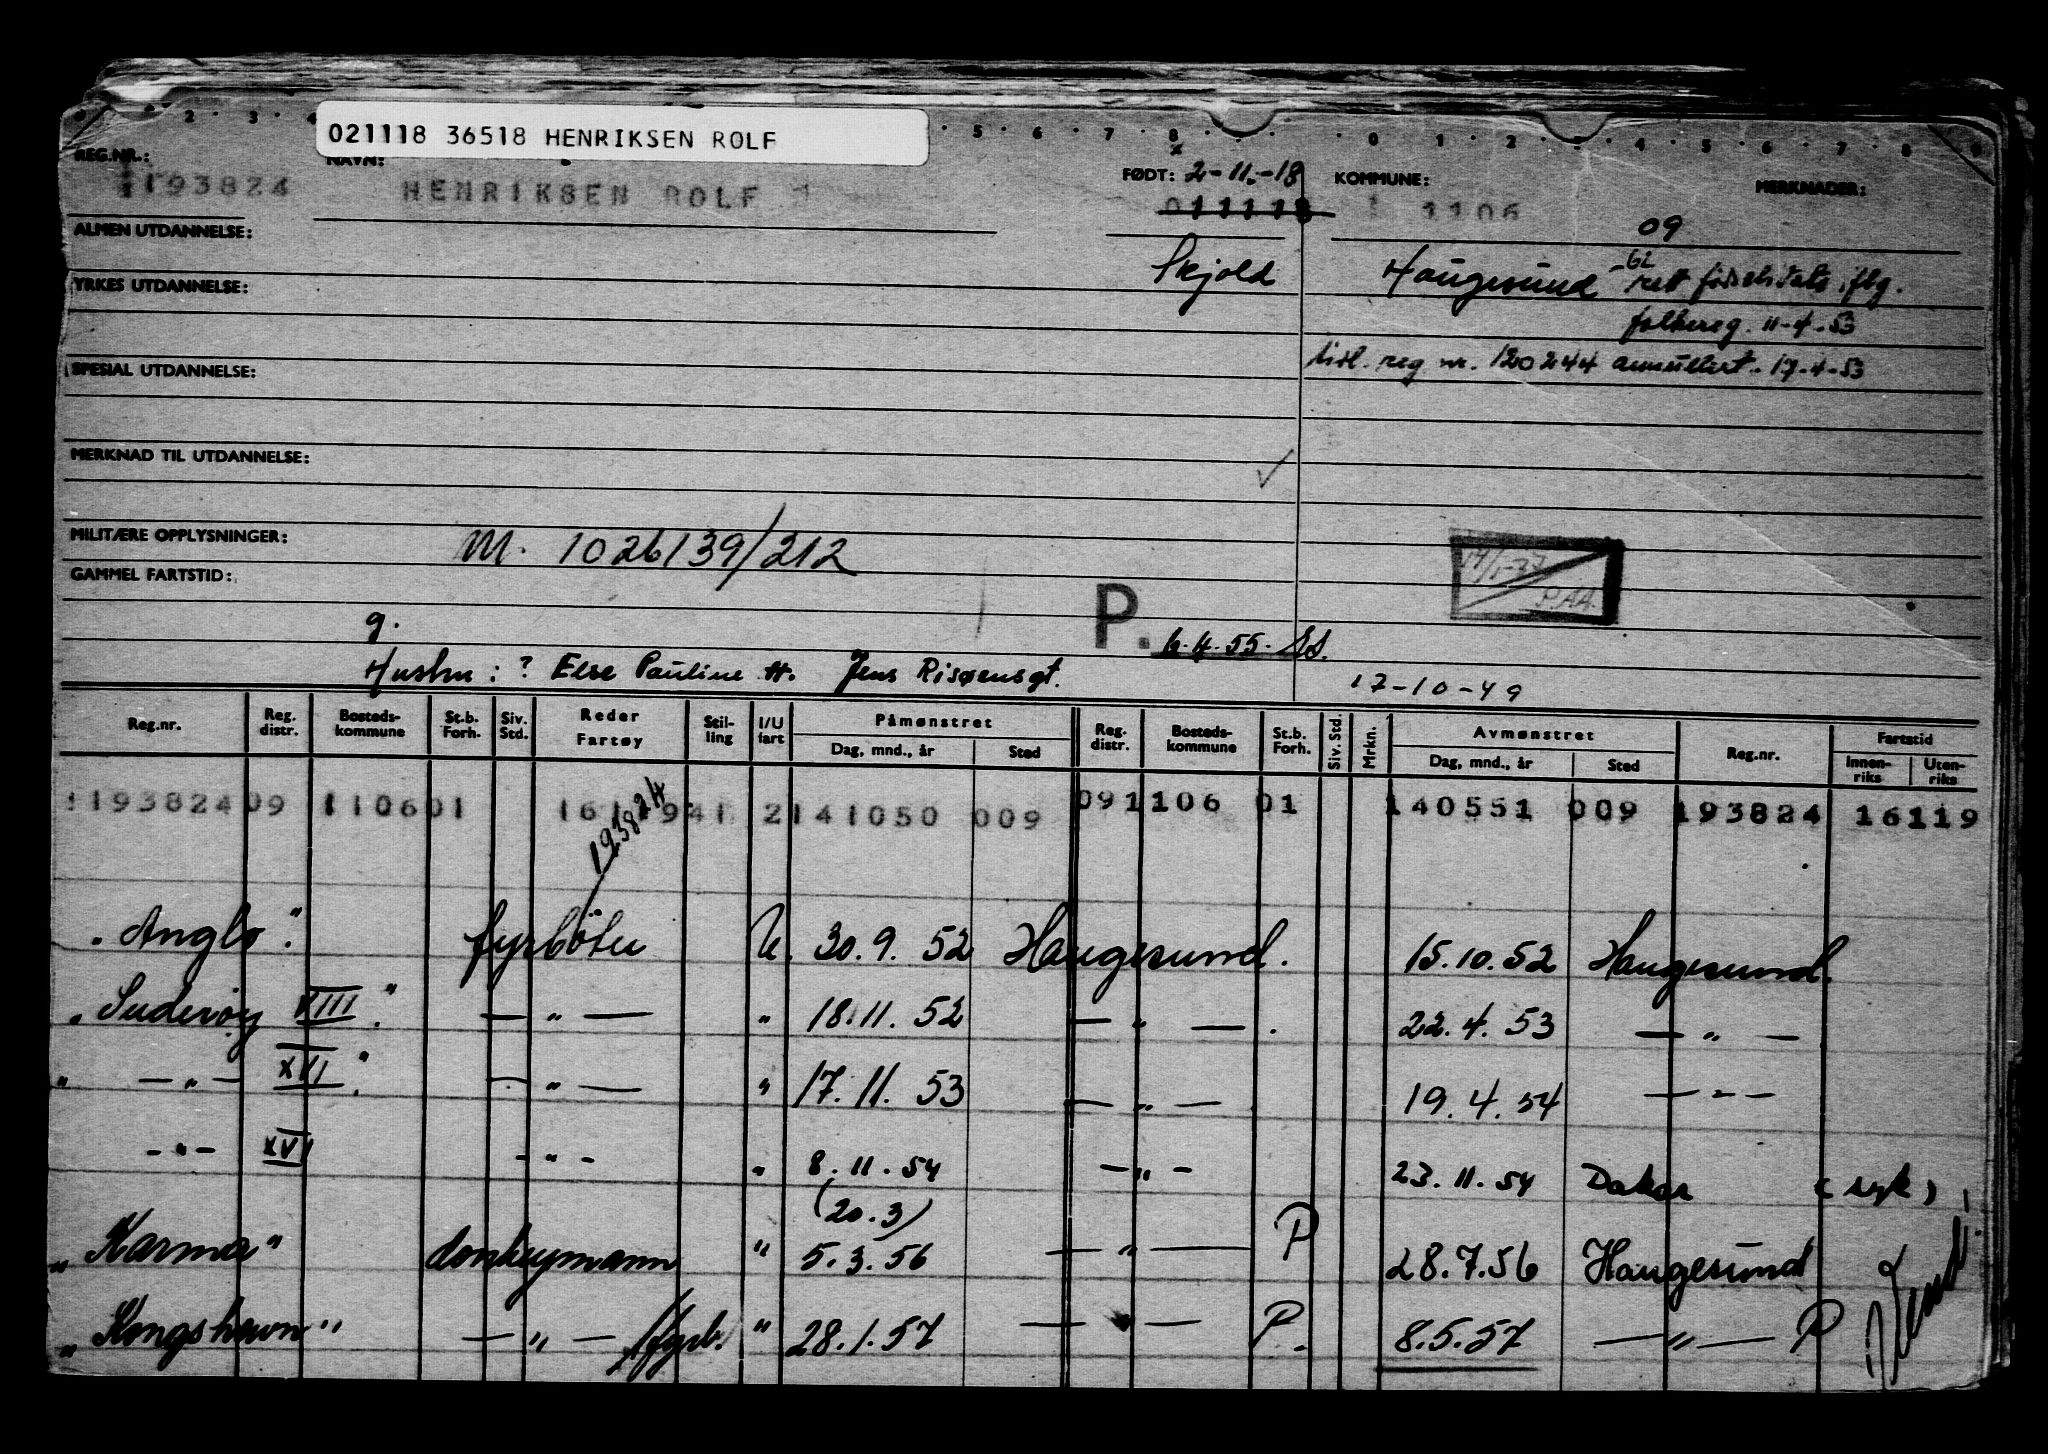 021118 36518 HENRIKSEN ROLF
REG.NR.: NAVN: FØDT: 2-11.-18 KOMMUNE: MERKNADER:
193824 HENRIKSEN ROLF 011118 1106
09
ALMEN UTDANNELSE: Skjold Haugesund rett fødselsdato iflg.
YRKES UTDANNELSE:
folkereg. 11-4-53
tidl. reg nr. 120244 annullert. 17-4-53
SPESIAL UTDANNELSE:
MERKNAD TIL UTDANNELSE:
MILITÆRE OPPLYSNINGER: M. 1026139/212
GAMMEL FARTSTID:
g. P. 6.4.55.
Hustru: ? Else Pauline H. Jens Risøensgt. 17-10-49
Reg.nr. Reg. distr. Bosteds-kommune St.b. Forh. Siv. Std. Reder Fartøy Stil-ling I/U fart Påmønstret Dag, mnd., år Sted Reg. distr. Bosteds-kommune St.b. Forh. Siv. Std. Mrkn. Avmønstret Dag, mnd., år Sted Reg.nr. Fartstid Innen-riks Uten-riks
193824 09 1106 01 941 2 141050 009 09 1106 01 140551 009 193824 16119
193824
"Anglo". fyrbøter U. 30.9.52 Haugesund. 15.10.52 Haugesund.
"Suderøy XIII". — " — " 18.11.52 — " — . 22.4.53 — " —
" — " — XVI". — " — " 17.11.53 — " — 19.4.54 — " —
— " — XVI — " — " 8.11.54 — " — 23.11.54 Dakar (syk)
(20.3)
"Karma" donkeymann " 5.3.56 — " — P 28.7.56 Haugesund
"Kongshavn" — " — /fyrb. " 28.1.57 — " — P. 8.5.57 — " — P